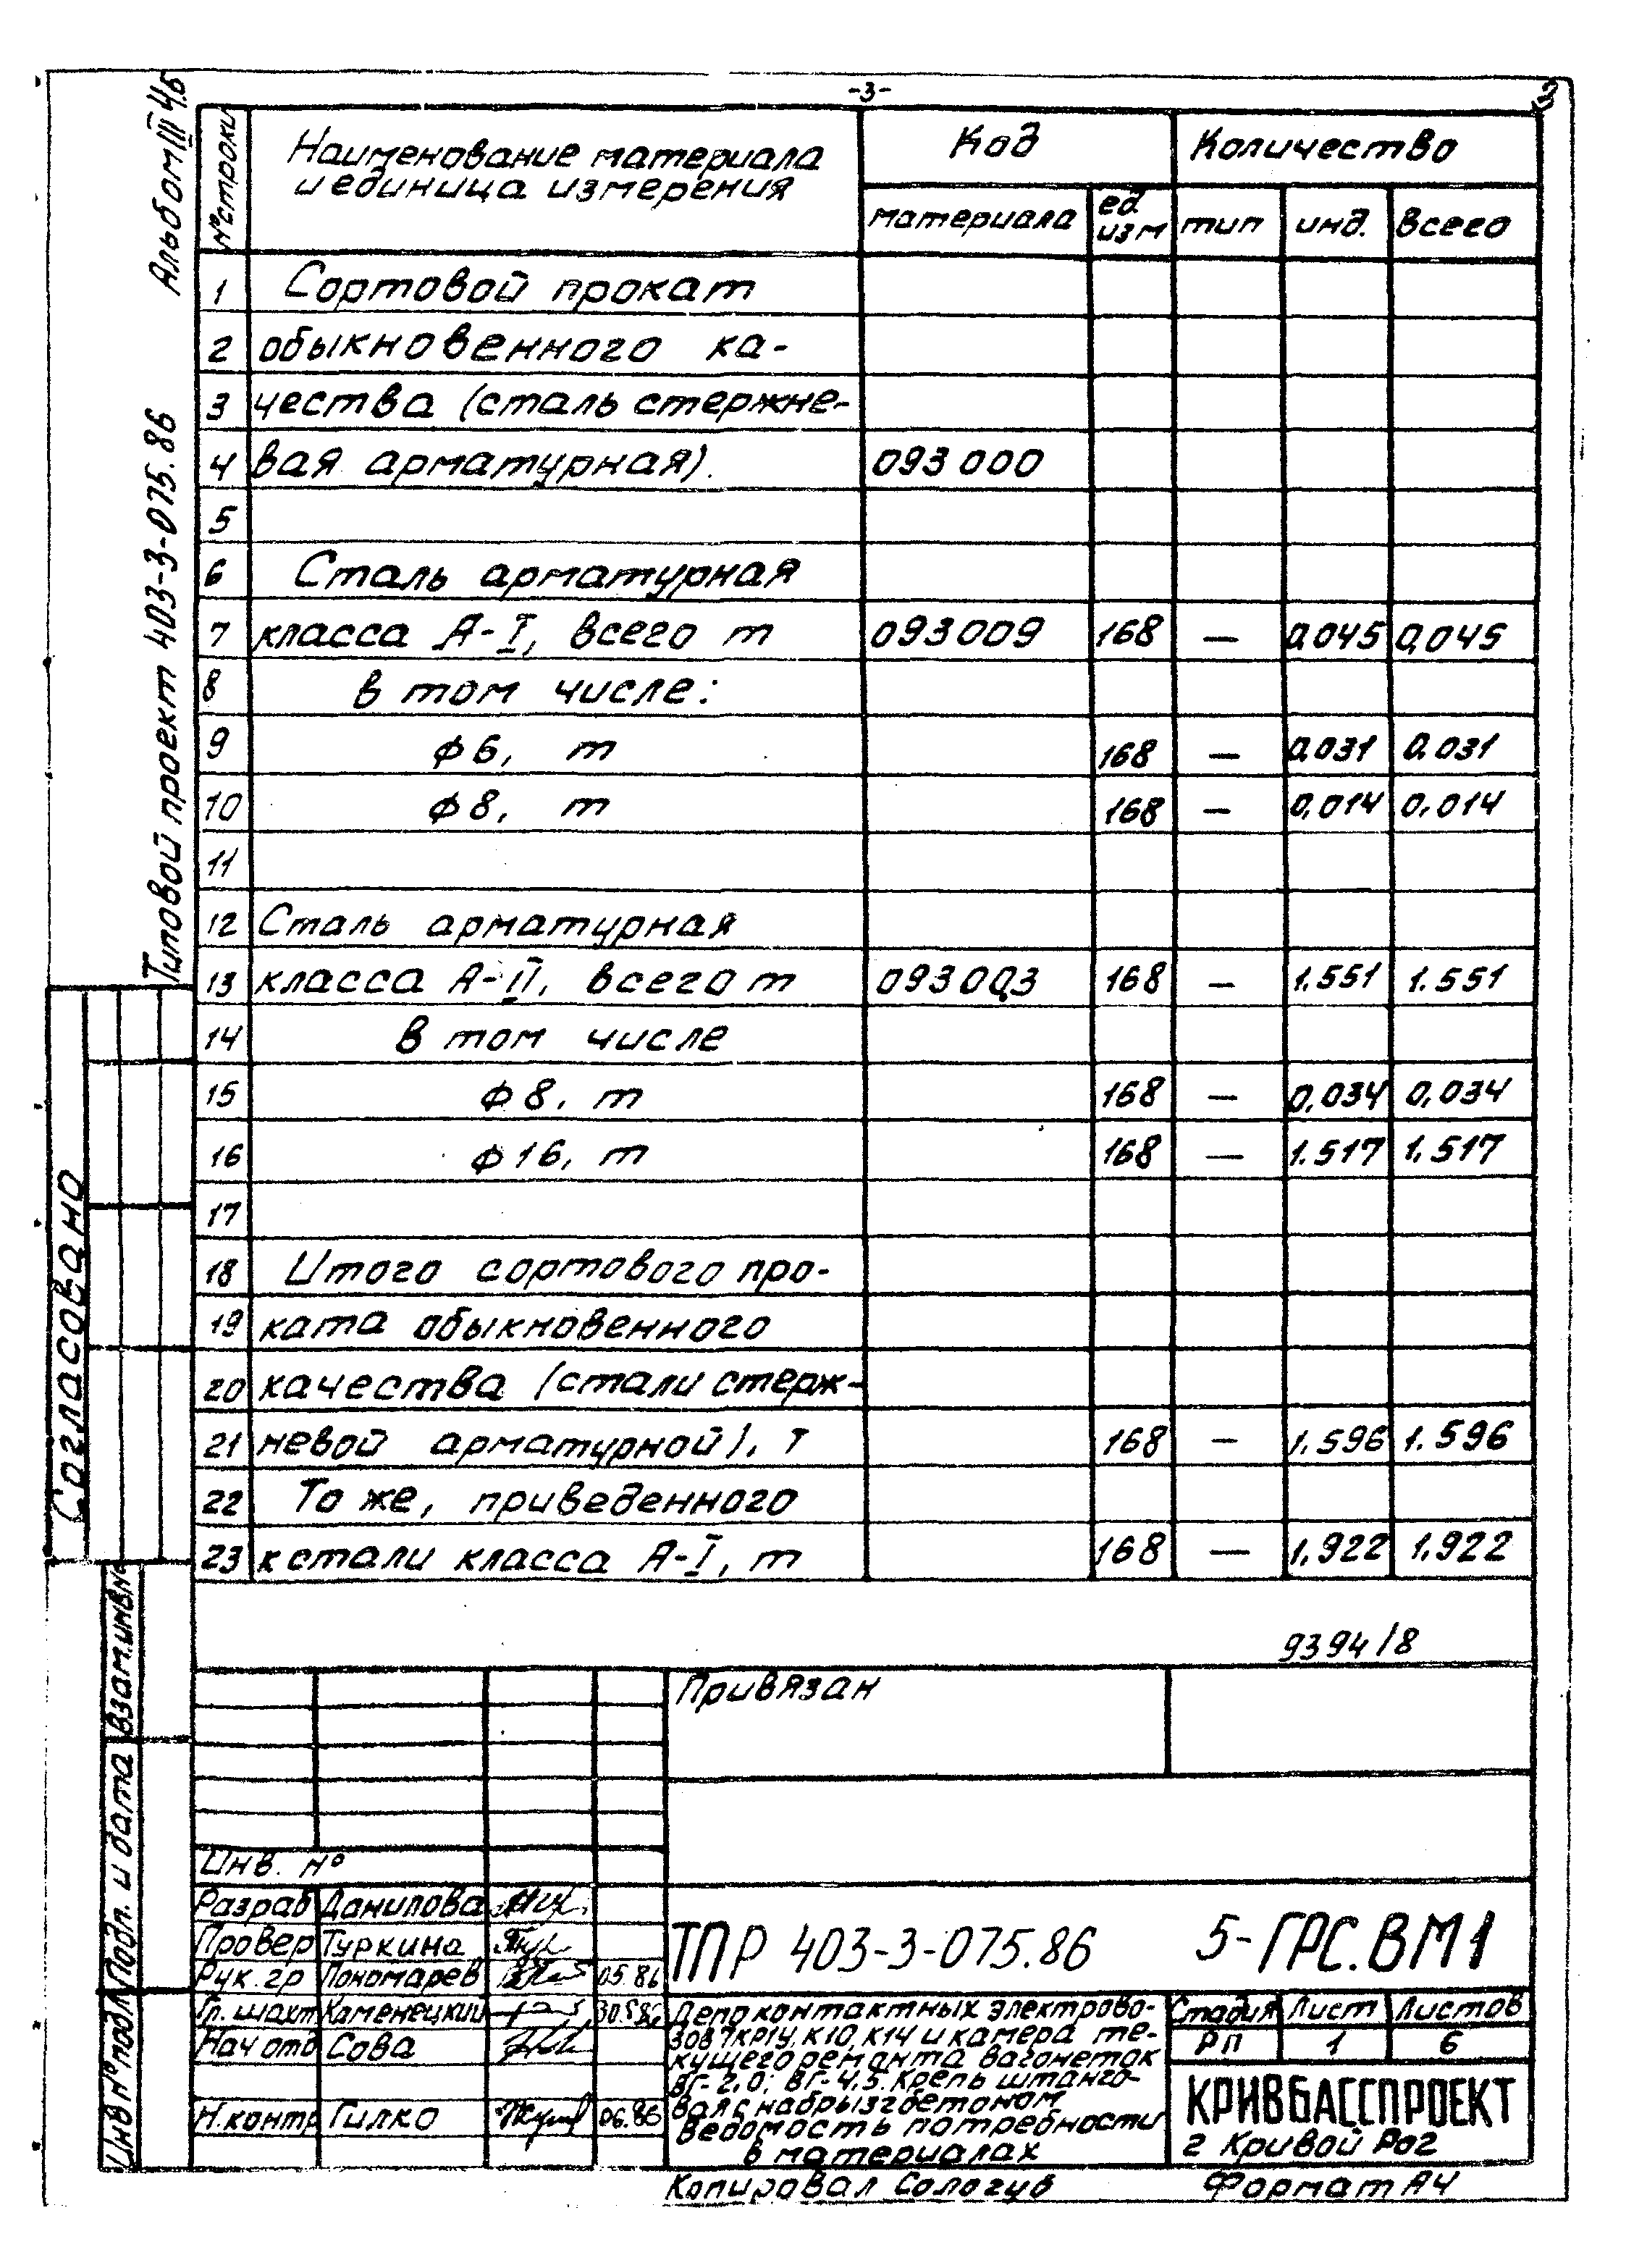 -3-
3
Альбом III ч.5
Типовой проект 403-3-075.86
Согласовано
Взам.инв№
Подп. и дата
Инв № подл
№ строки
Наименование материала
и единица измерения
Код
Количество
материала
ед.
изм
тип
инд.
всего
1 Сортовой прокат
2 обыкновенного ка-
3 чества (сталь стержне-
4 вая арматурная). 093000
5
6 Сталь арматурная
7 класса А-I, всего т 093009 168 — 0,045 0,045
8 в том числе:
9 ф6, т 168 — 0,031 0,031
10 ф8, т 168 — 0,014 0,014
11
12 Сталь арматурная
13 класса А-II, всего т 093003 168 — 1.551 1.551
14 в том числе
15 ф8, т 168 — 0,034 0,034
16 ф16, т 168 — 1.517 1,517
17
18 Итого сортового про-
19 ката обыкновенного
20 качества (стали стерж-
21 невой арматурной), т 168 — 1.596 1.596
22 То же, приведенного
23 к стали класса А-I, т 168 — 1,922 1,922
9394/8
Привязан
Инв. №
Разраб Данилова
Провер Туркина
Рук. гр Пономарев 05.86
Гл. шахт Каменецкий
Нач отд Сова
Н.контр Гилко 06.86
ТПР 403-3-075.86 5-ГРС.ВМ1
Депо контактных электрово-
зов 7КР1У, К10, К14 и камера те-
кущего ремонта вагонеток
ВГ-2,0; ВГ-4,5. Крепь штанго-
вая с набрызгбетоном
Ведомость потребности
в материалах
Стадия Лист Листов
РП 1 6
КРИВБАССПРОЕКТ
г Кривой Рог
Копировал Сологуб
Формат А4